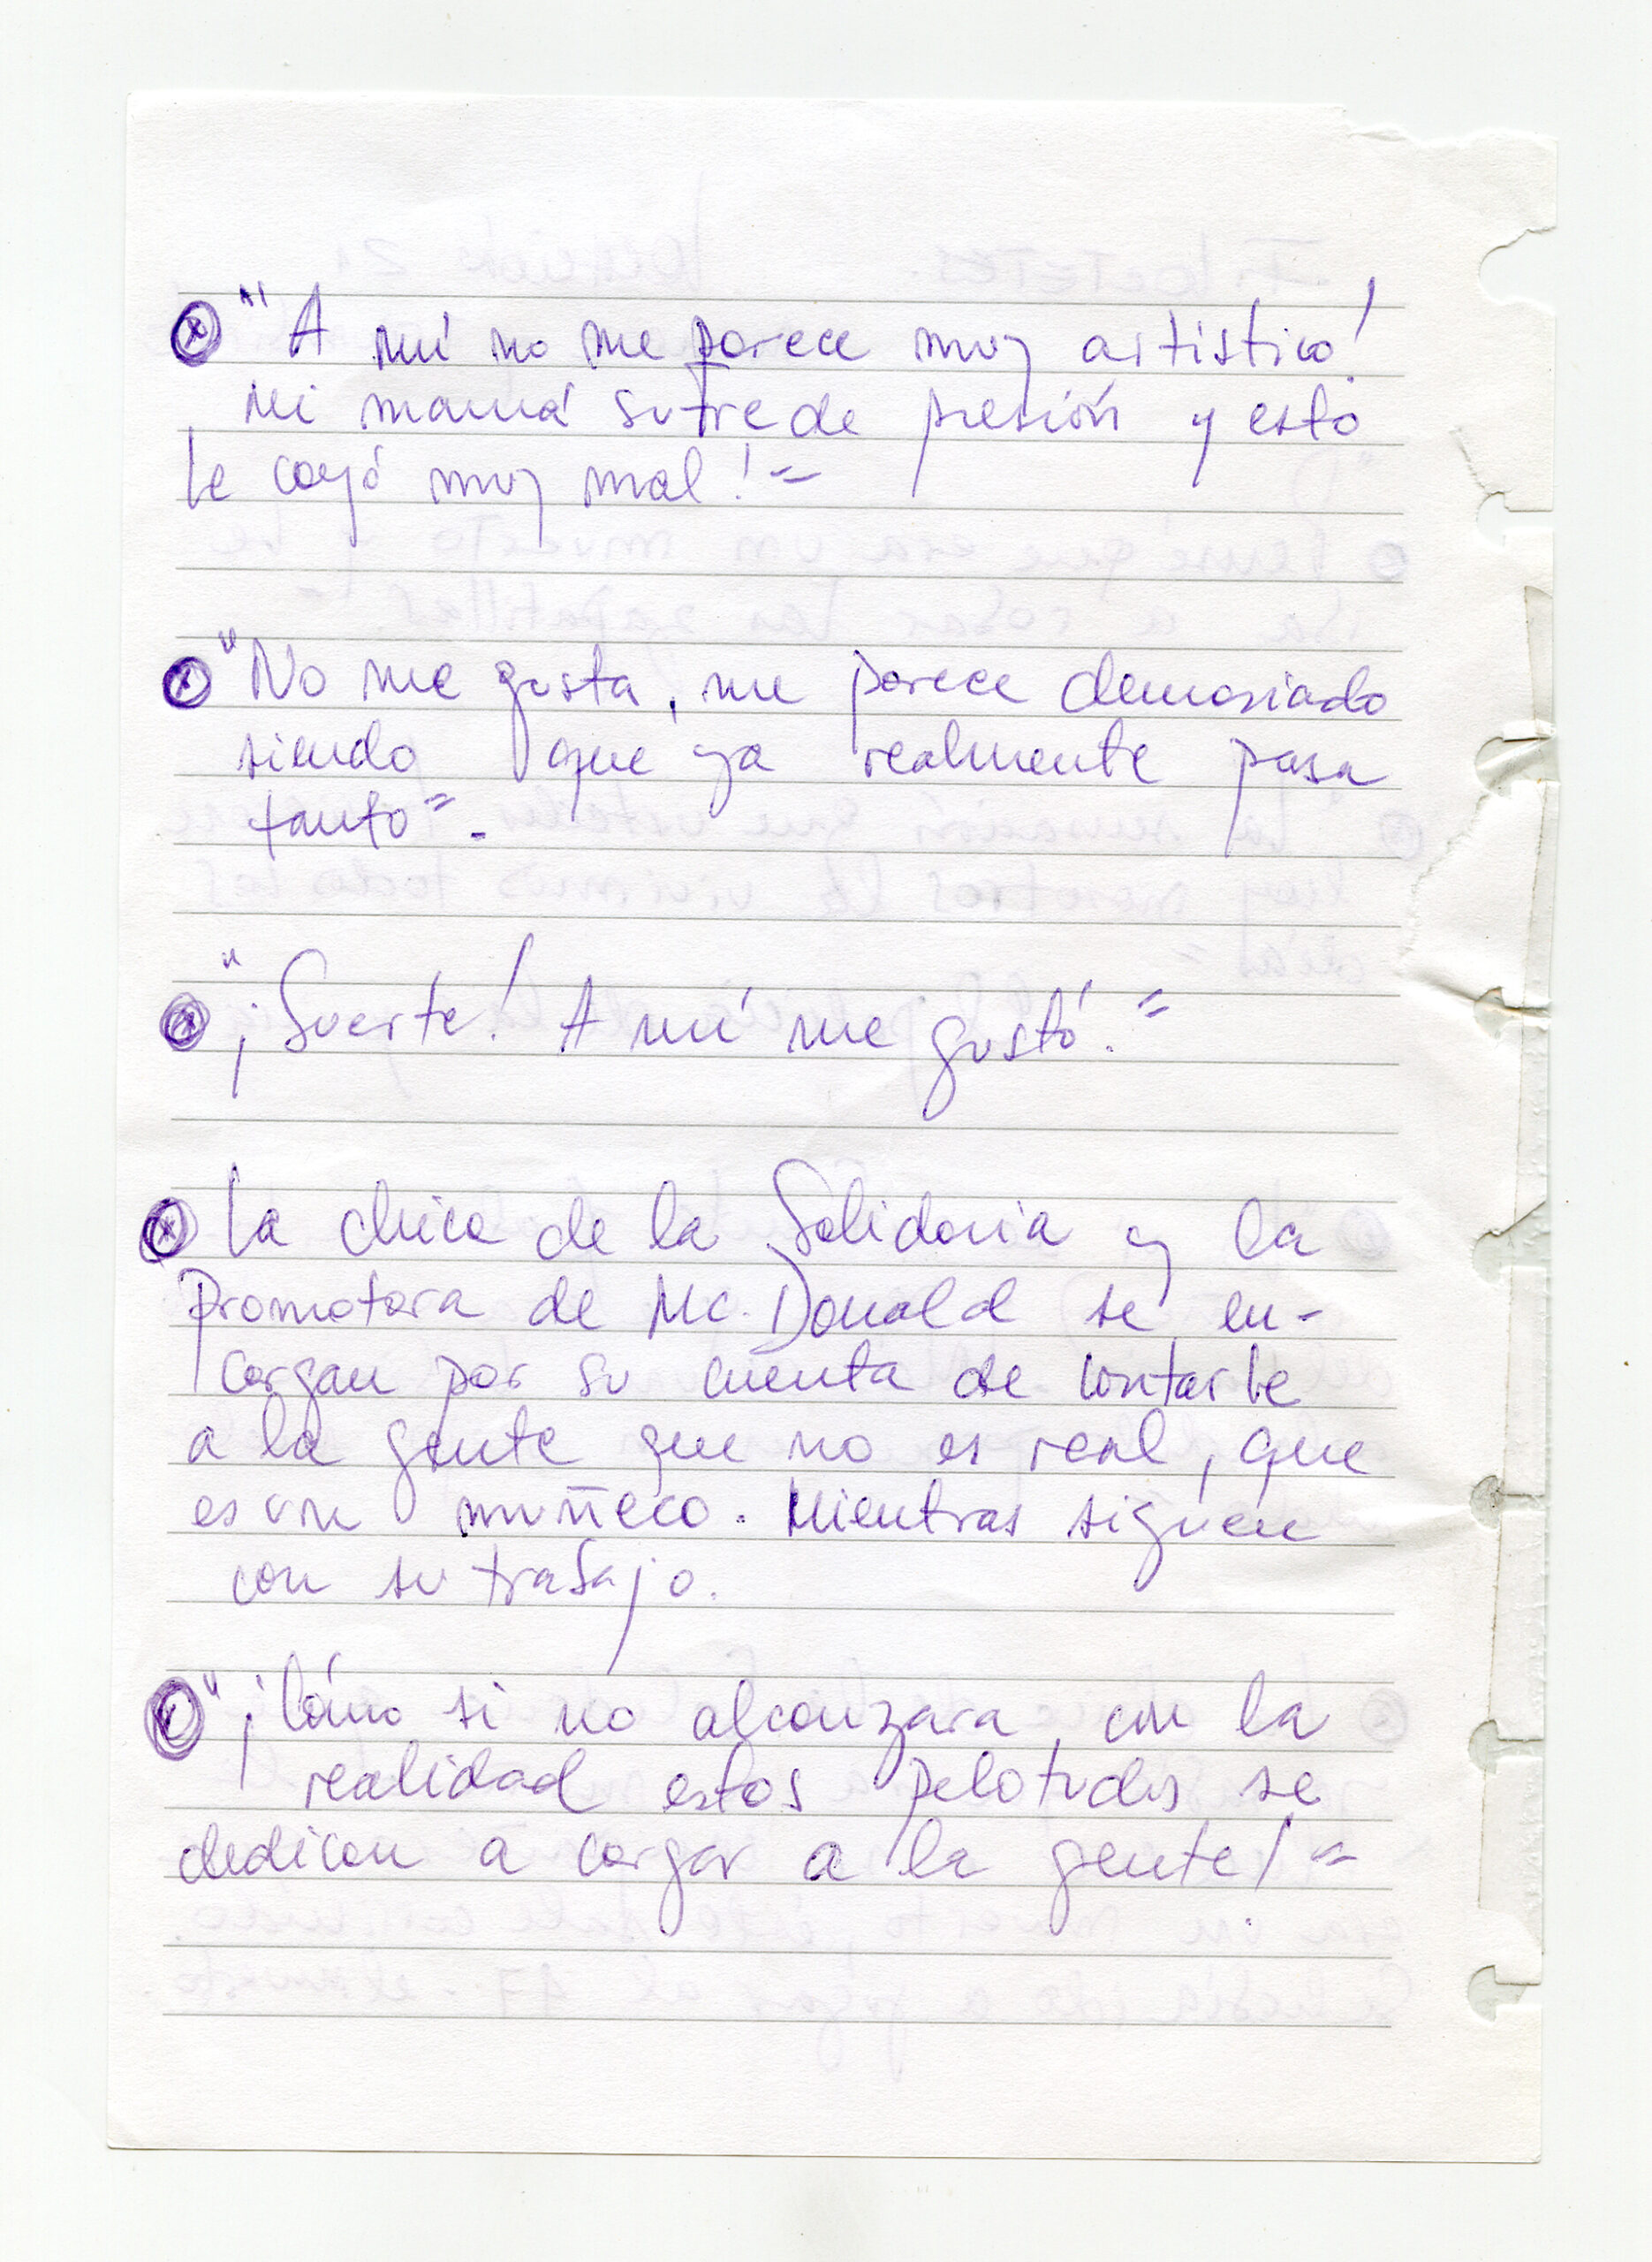 "A mí no me parece muy artístico!
Mi mamá sufre de presión y esto
le cayó muy mal!"
"No me gusta, me parece demasiado
siendo que ya realmente pasa
tanto".
"¡Suerte! A mí me gustó."
La chica de la Solidaria y la
Promotora de Mc. Donald se en-
cargan por su cuenta de contarle
a la gente que no es real, que
es un muñeco. Mientras siguen
con su trabajo.
"¡Cómo si no alcanzara con la
realidad estos pelotudos se
dedican a cargar a la gente!"